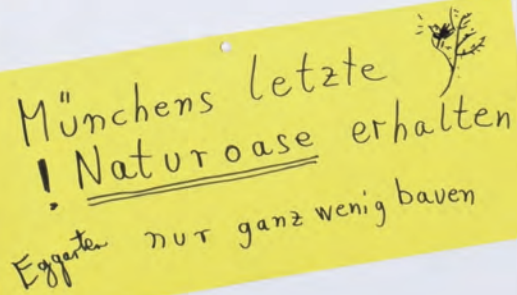 Münchens letzte
! Naturoase erhalten
Eggarten nur ganz wenig bauen